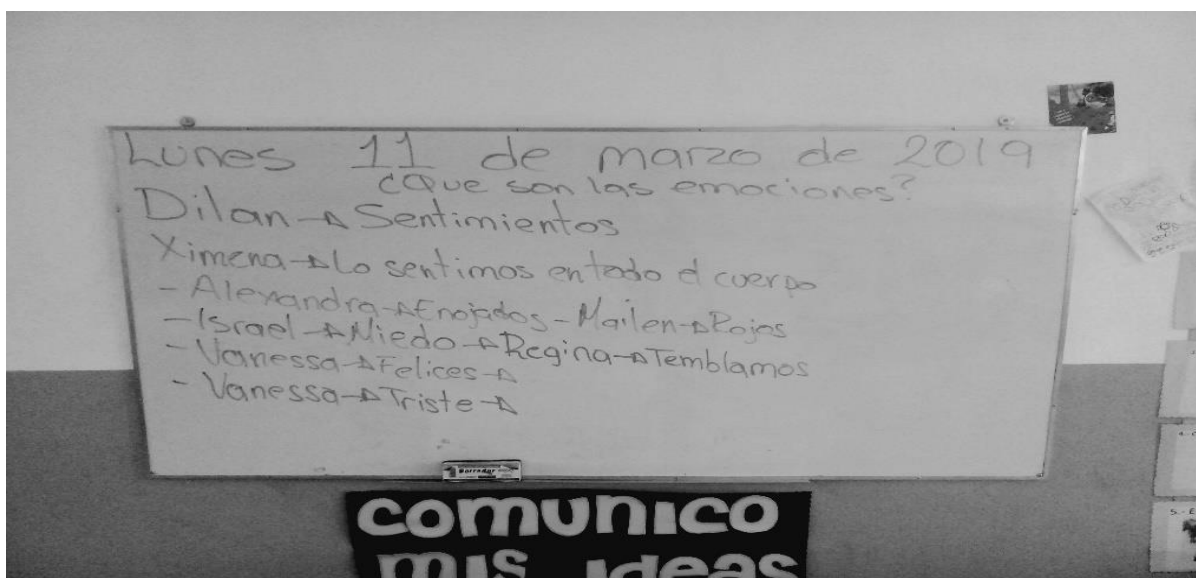 Lunes 11 de marzo de 2019
¿Que son las emociones?
Dilan→Sentimientos
Ximena→Lo sentimos en todo el cuerpo
- Alexandra→Enojados - Mailen→Rojos
- Israel→Miedo→Regina→Temblamos
- Vanessa→Felices→
- Vanessa→Triste→
Borrador
comunico
mis ideas